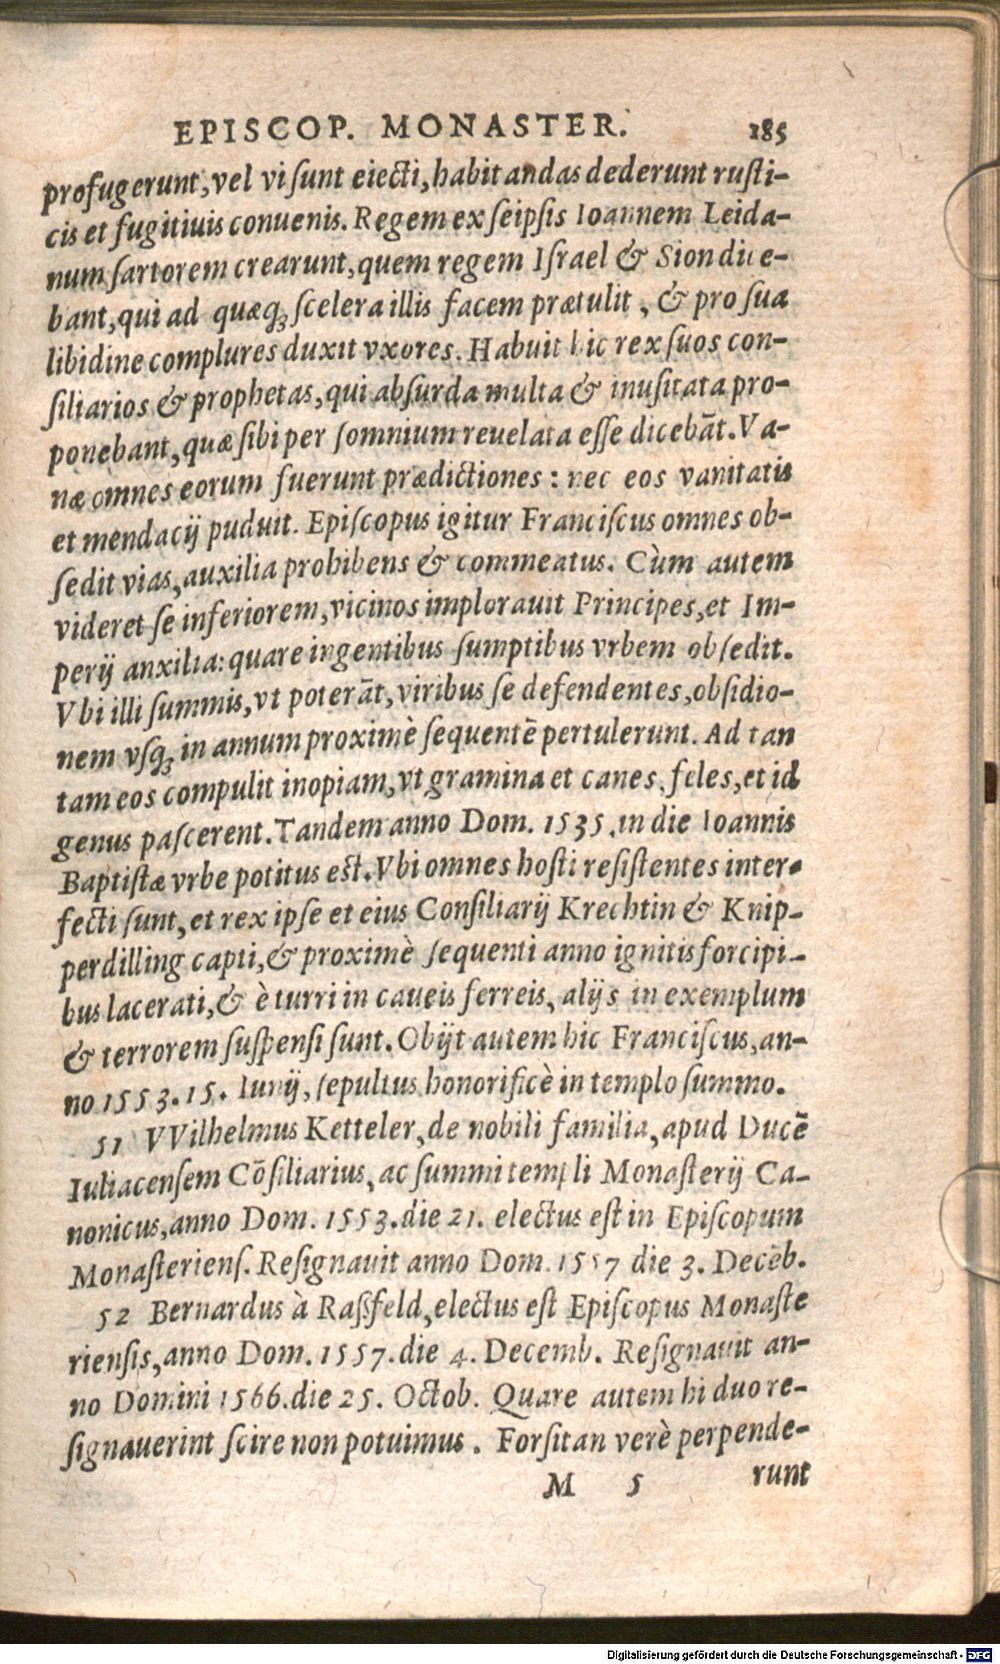 EPISCOP. MONASTER. 185
profugerunt, vel vi sunt eiecti, habitandas dederunt rusti-
cis et fugitiuis conuenis. Regem ex seipsis Ioannem Leida-
num sartorem crearunt, quem regem Israel & Sion dice-
bant, qui ad quæq; scelera illis facem prætulit, & pro sua
libidine complures duxit vxores. Habuit hic rex suos con-
siliarios & prophetas, qui absurda multa & inusitata pro-
ponebant, quæ sibi per somnium reuelata esse dicebāt. Va-
næ omnes eorum fuerunt prædictiones: nec eos vanitatis
et mendacij puduit. Episcopus igitur Franciscus omnes ob-
sedit vias, auxilia prohibens & commeatus. Cùm autem
videret se inferiorem, vicinos implorauit Principes, et Im-
perij anxilia: quare ingentibus sumptibus vrbem obsedit.
Vbi illi summis, vt poterāt, viribus se defendentes, obsidio-
nem vsq; in annum proximè sequentē pertulerunt. Ad tan
tam eos compulit inopiam, vt gramina et canes, feles, et id
genus pascerent. Tandem anno Dom. 1535. in die Ioannis
Baptistæ vrbe potitus est. Vbi omnes hosti resistentes inter-
fecti sunt, et rex ipse et eius Consiliarij Krechtin & Knip-
perdilling capti, & proximè sequenti anno ignitis forcipi-
bus lacerati, & è turri in caueis ferreis, alijs in exemplum
& terrorem suspensi sunt. Obijt autem hic Franciscus, an-
no 1553. 15. Iunij, sepultus honorificè in templo summo.
51 VVilhelmus Ketteler, de nobili familia, apud Ducē
Iuliacensem Cōsiliarius, ac summi templi Monasterij Ca-
nonicus, anno Dom. 1553. die 21. electus est in Episcopum
Monasteriens. Resignauit anno Dom. 1557 die 3. Decēb.
52 Bernardus à Raßfeld, electus est Episcopus Monaste
riensis, anno Dom. 1557. die 4. Decemb. Resignauit an-
no Domini 1566. die 25. Octob. Quare autem hi duo re-
signauerint scire non potuimus. Forsitan verè perpende-
M 5 runt
Digitalisierung gefördert durch die Deutsche Forschungsgemeinschaft - DFG